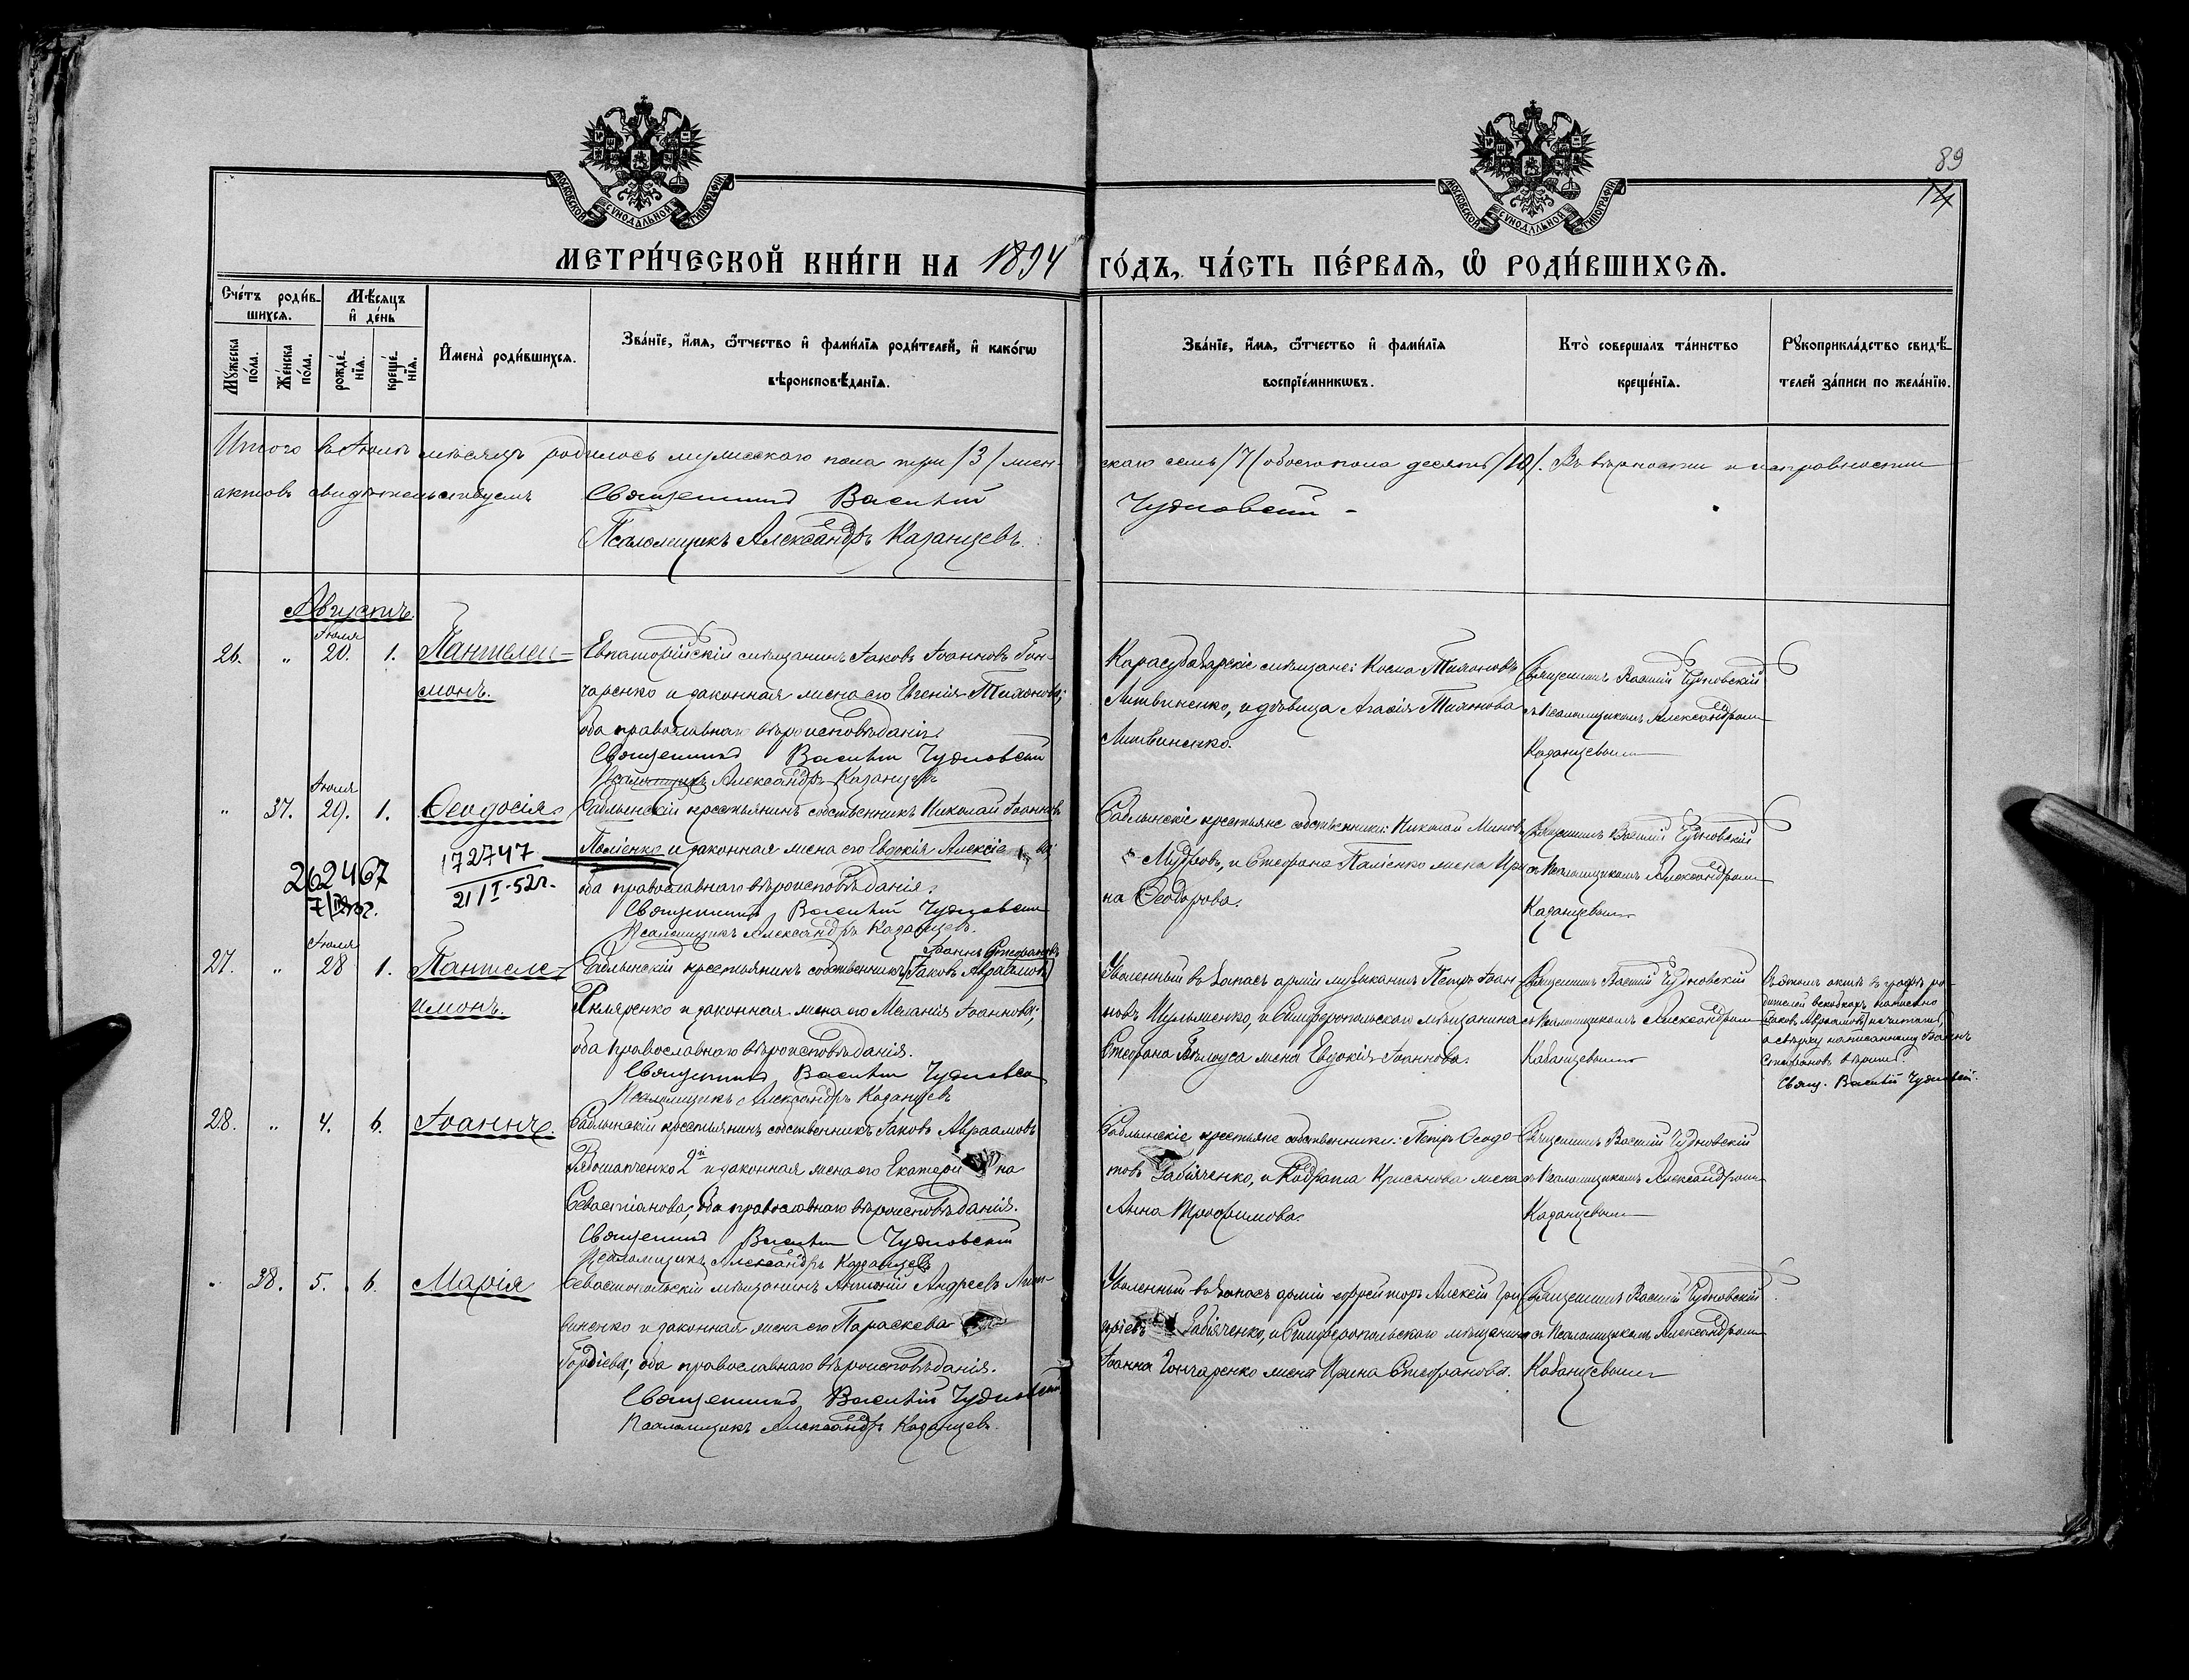 МОСКОВСКОЙ СѴНОДАЛЬНОЙ ТИПОГРАФІИ
МОСКОВСКОЙ СѴНОДАЛЬНОЙ ТИПОГРАФІИ
89
14
МЕТРИ́ЧЕСКОЙ КНИ́ГИ НА 1894 ГО́ДЪ, ЧА́СТЬ ПЕ́РВАѦ, Ѡ РОДИ́ВШИХСѦ.
Сче́тъ роди́вшихсѧ.
Мꙋ́жеска по́ла.
Же́нска по́ла.
Мѣ́сѧцъ и҆ де́нь
рожде́нїѧ.
креще́нїѧ.
И҆мена̀ роди́вшихсѧ.
Зва́нїе, и҆́мѧ, ѻ҆́тчество и҆ фами́лїѧ роди́телей, и҆ како́гѡ
вѣроисповѣ́данїѧ.
Зва́нїе, и҆́мѧ, ѻ҆́тчество и҆ фами́лїѧ
воспрїе́мникѡвъ.
Кто̀ соверша́лъ та́инство
креще́нїѧ.
Рꙋкоприкла́дство свидѣ́-
телей за́писи по жела́нїю.
Итого въ Іюлѣ мѣсяцѣ родилось мужескаго пола три /3/ жен-
скаго семь /7/ обоего пола десять /10/. Въ вѣрности и исправности
актовъ свидѣтельствуемъ Священникъ Василій
Чудновскій
Псаломщикъ Александръ Казанцевъ.
Августъ.
26. " Іюля 20. 1. Пантелеи-
монъ.
Евпаторійскій мѣщанинъ Іаковъ Іоанновъ Гон-
чаренко и законная жена его Евгенія Тимонова;
оба православнаго вѣроисповѣданія.
Священникъ Василій Чудновскій
Псаломщикъ Александръ Казанцевъ
Карасубазарскіе мѣщане: Косма Тимоновъ
Литвиненко, и дѣвица Агафія Тимонова
Литвиненко.
Священникъ Василій Чудновскій
съ псаломщикомъ Александромъ
Казанцевымъ
" 37. Іюля 29. 1. Ѳеодосія
172747
21/I-52г.
262467
Саблынскій крестьянинъ собственникъ Николай Іоанновъ
Паліенко и законная жена его Евдокія Алексіева;
оба православнаго вѣроисповѣданія.
Священникъ Василій Чудновскій
Псаломщикъ Александръ Казанцевъ.
Саблынскіе крестьяне собственники: Николай Миновъ
Мудровъ, и Стефана Паліенко жена Ири-
на Ѳеодорова.
Священникъ Василій Чудновскій
съ Псаломщикомъ Александромъ
Казанцевымъ
27. " Іюля 28 1. Пантеле-
имонъ.
Іоаннъ Стефановъ
Саблынскій крестьянинъ собственникъ [Іаковъ Авраамовъ]
Скляренко и законная жена его Меланія Іоаннова;
оба православнаго вѣроисповѣданія.
Священникъ Василій Чудновскій
Псаломщикъ Александръ Казанцевъ
Уволенный въ запасъ арміи музыкантъ Петръ Іоан-
новъ Шульженко, и Симферопольскаго мѣщанина
Стефана Бѣлоуса жена Евдокія Іоаннова.
Священникъ Василій Чудновскій
съ Псаломщикомъ Александромъ
Казанцевымъ
Въ этомъ актѣ въ графѣ ро-
дителей въ скобкахъ написано
[Іаковъ Авраамовъ] не читать,
а сверху написанному Іоаннъ
Стефановъ вѣрить.
Свящ. Василій Чудновскій.
28. " 4. 6. Іоаннъ.
Саблынскій крестьянинъ собственникъ Іаковъ Авраамовъ
Рябошапченко 2й и законная жена его Екатерина
Севастіанова; оба православнаго вѣроисповѣданія.
Священникъ Василій Чудновскій
Псаломщикъ Александръ Казанцевъ
Саблынскіе крестьяне собственники: Петръ Ѳеодо-
товъ Бабіяченко, и Кодрата Крисанова жена
Анна Трофимова.
Священникъ Василій Чудновскій
съ Псаломщикомъ Александромъ
Казанцевымъ
" 38. 5. 6. Марія
Севастопольскій мѣщанинъ Антоній Андреевъ Лит-
виненко и законная жена его Параскева
Гордіева; оба православнаго вѣроисповѣданія.
Священникъ Василій Чудновскій
Псаломщикъ Александръ Казанцевъ.
Уволенный въ запасъ арміи ефрейторъ Алексій Гри-
горіевъ Бабіяченко, и Симферопольскаго мѣщанина
Іоанна Гончаренко жена Ирина Стефанова.
Священникъ Василій Чудновскій
съ Псаломщикомъ Александромъ
Казанцевымъ